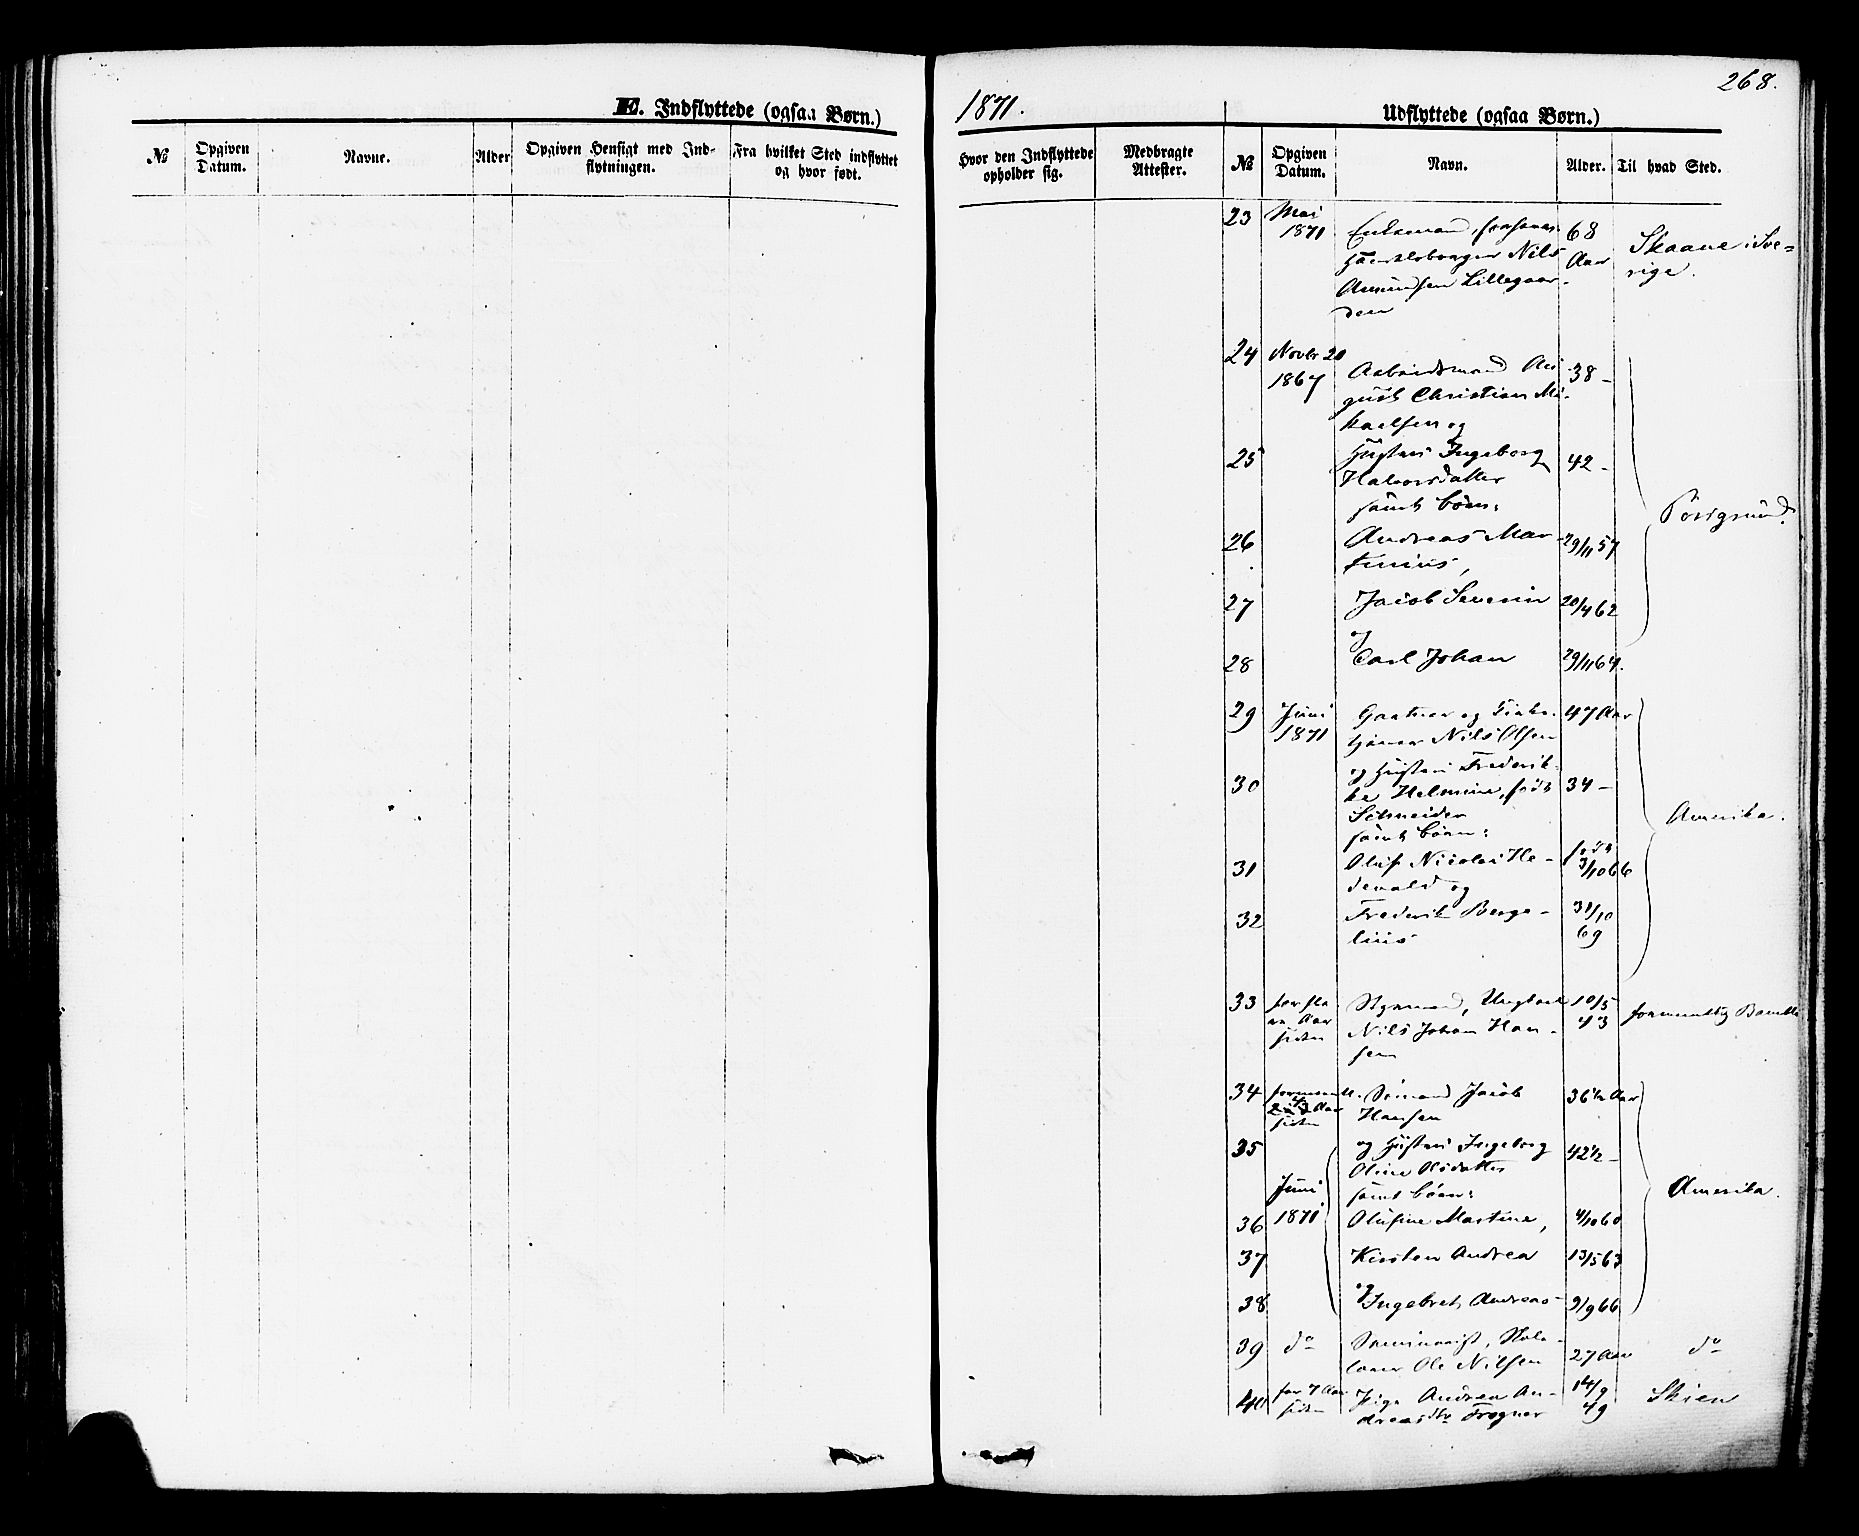 268.
E. Indflyttede (ogsaa Børn.)
1871.
Udflyttede (ogsaa Børn.)
№
Opgiven Datum.
Navne.
Alder
Opgiven Hensigt med Indflytningen.
Fra hvilket Sted indflyttet og hvor født.
Hvor den Indflyttede opholder sig.
Medbragte Attester.
№
Opgiven Datum.
Navn.
Alder.
Til hvad Sted.
23 Mai 1871 Enkemand, forhenv. 68 Aar Skaane i Sve=
Nils rige.
Amundsen Lillegaar-
den
24 Novbr 20 1867 Arbeidsmand Au- 38 -
gust Christian Mi-
kaelsen og
25 Hustru Ingeborg 42 -
Halvorsdatter
samt Børn: Porsgrund.
26 Andreas Mar- 29/11 57
tinius,
27 Jacob Severin 20/4 62
og
28 Carl Johan 29/11 64.
29 Juni 1871 Gartner og 47 Aar
tjener Nils Olsen
30 og Hustru Frederik-
ke Helmine, født 34 -
Schneider Amerika.
samt Børn:
31 Oluf Nicolai He- født 3/10 66
devald og
32 Frederik Berge- 31/10 69
lius
33 for fle- re Aar siden Ungkarl 10/5 43 formentlig Bamble
Nils Johan Han-
sen
34 formentl. 2 a 3 Aar siden Sømand Jacob 36 1/2 Aar
Hansen
35 og Hustru Ingeborg 42 1/2 -
Oline Olsdatter
Juni 1871 samt Børn: Amerika.
36 Olufine Martine, 4/10 60
37 Kirsten Andrea 13/5 63
og
38 Ingebret Andreas 9/9 66
39 do Seminarist, Skole-
lærer Ole Nilsen 27 Aar do
40 for 7 Aar siden Pige Andrea An- 14/9 49 Skien
dreasdtr Frogner